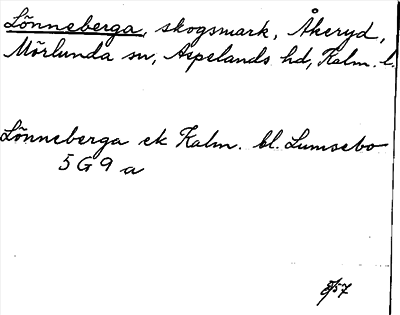 Lönneberga, skogsmark, Åkeryd,
Mörlunda sn, Aspelands hd, Kalm. l.
Lönneberga ek Kalm. bl. Lumsebo
5 G 9 a